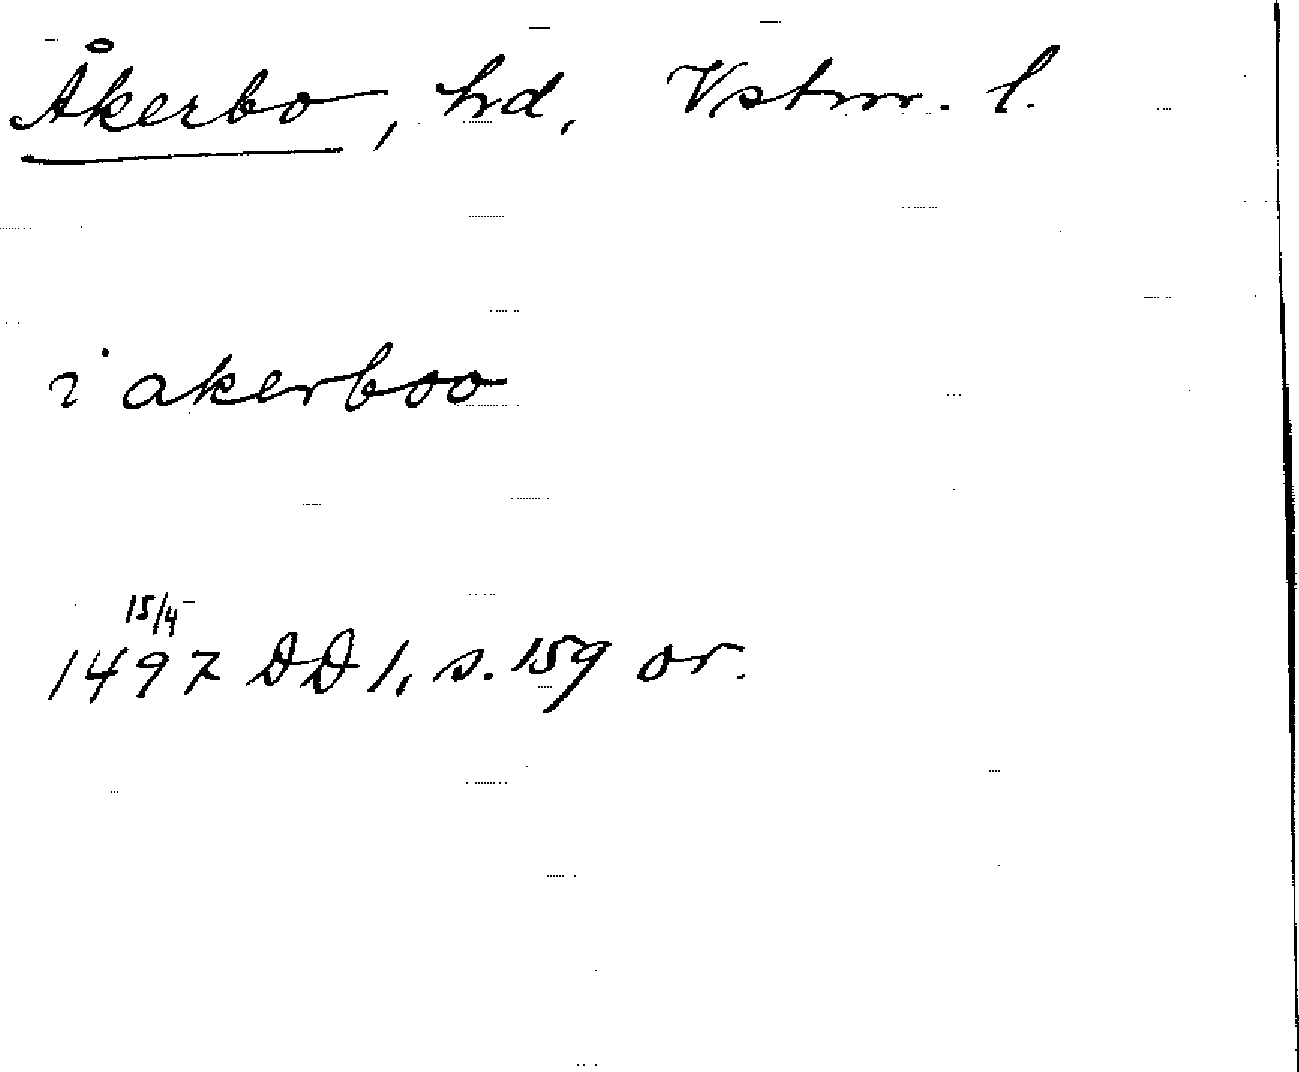 Åkerbo, hd, Vstm. l.
i akerboo
15/4
1497 DD 1, s. 159 or.